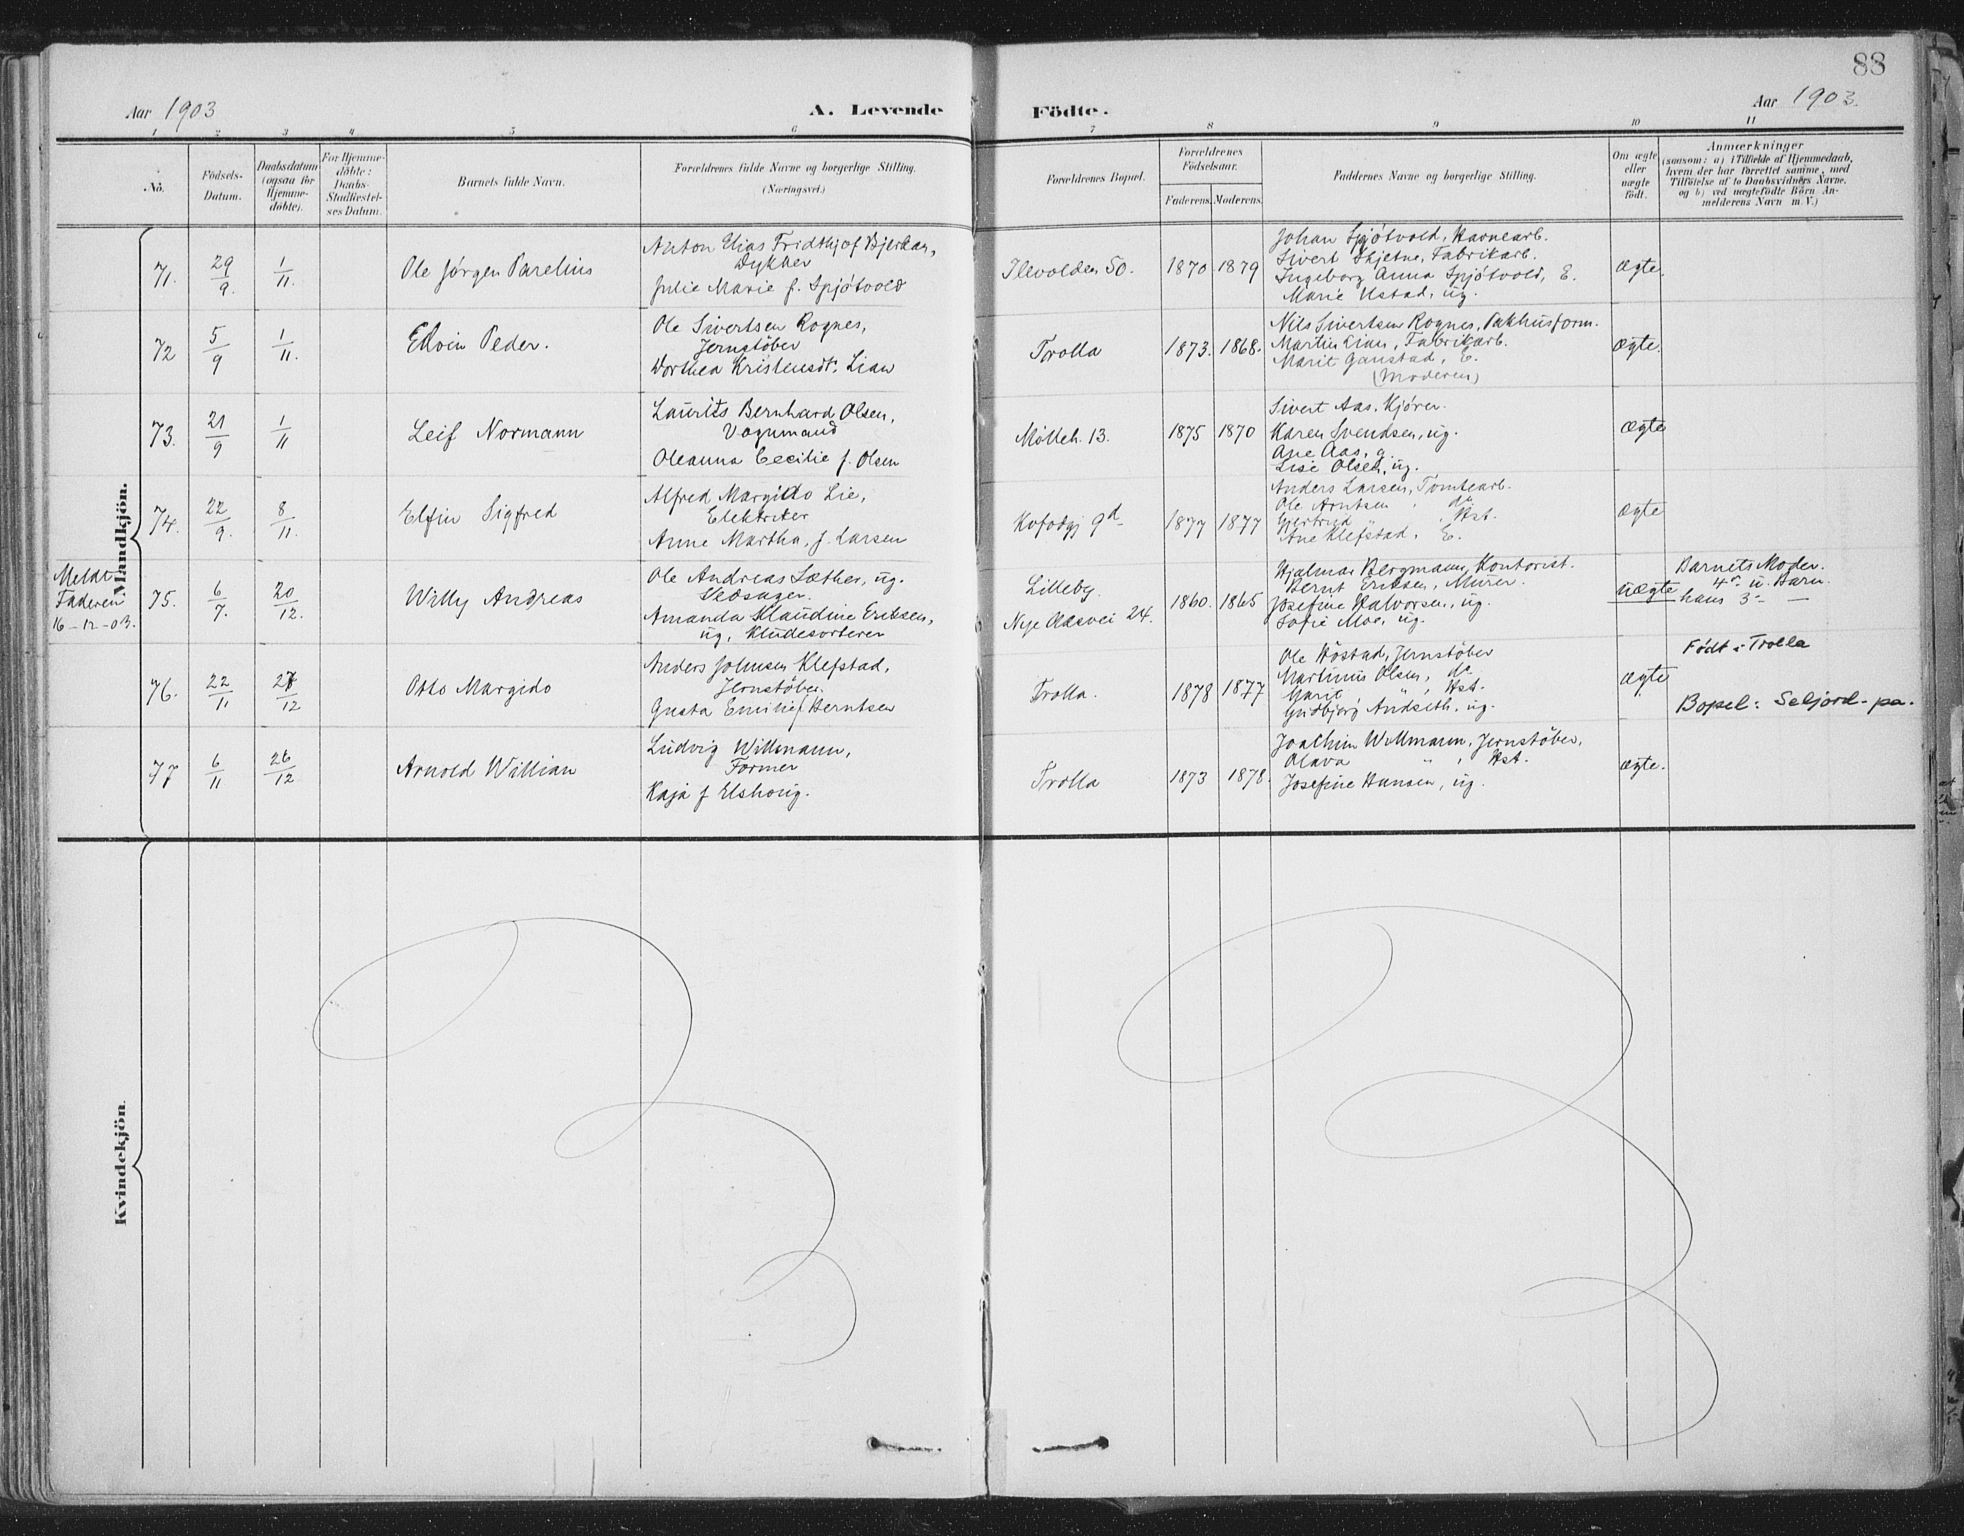 88
Aar 1903 A. Levende Födte. Aar 1903.
1 2 3 4 5 6 7 8 9 10 11
No.
Födsels-Datum.
Daabsdatum (ogsaa for Hjemme-döbte).
For Hjemme-döbte: Daabs-Stadfæstel-ses Datum.
Barnets fulde Navn.
Forældrenes fulde Navne og borgerlige Stilling.
(Næringsvei.)
Forældrenes Bopæl.
Forældrenes Födselsaar.
Faderens. Moderens.
Faddernes Navne og borgerlige Stilling.
Om ægte eller uægte födt.
Anmærkninger
(saasom: a) i Tilfælde af Hjemmedaab,
hvem der har forrettet samme, med
Tilföielse af to Daabsvidners Navne,
og b) ved uægtefödte Börn An-
melderens Navn m. V.)
Mandkjön.
71. 29/9. 1/11. Ole Jørgen Parelius
Anton Elias Fridthjof Bjerkan,
Dykker
Julie Marie f. Spjøtvold
Ilevolden 50. 1870 1879
Johan Spjøtvold, Havnearb.
Sivert Skjetne, Fabrikarb.
Ingeborg Anna Spjøtvold, E.
Marie Ustad, ug.
ægte.
72 5/9 1/11. Edvin Peder.
Ole Sivertsen Rognes,
Jernstøber
Dorthea Kristensdt. Lian
Trolla 1873. 1868.
Nils Sivertsen Rognes, Pakhusform.
Martin Lian, Fabrikarb.
Marit Ganstad, E.
(Moderen)
ægte.
73. 21/9 1/11 Leif Normann
Laurits Bernhard Olsen,
Vognmand
Oleanna Cecilie f. Olsen
Mølleb. 13. 1875 1870
Sivert Aas, Kjører.
Karen Svendsen, ug.
Ane Aas, g.
Lise Olsen, ug.
ægte
74. 22/9. 8/11. Elfin Sigfred
Alfred Margido Lie,
Elektriker
Anne Martha, f. Larsen
Kofodgj 9d 1877 1877
Anders Larsen, Tomtearb.
Ole Arntsen, do
Gertrud " , Hst.
Ane Klefstad, E.
ægte
Meldt
Faderen
16-12-03.
75. 6/7. 20/12. Willy Andreas
Ole Andreas Læther, ug.
Sedsager.
Amanda Klaudine Eriksen,
ug, Kludesorterer
Lilleby.
Nye Aasvei 24. 1860. 1865
Hjalmar Bergmann, Kontorist.
Bernt Eriksen, Murer.
Josefine Halvorsen, ug.
Sofie Moe, ug.
uægte
Barnets Moder.
4de u. Barn.
hans 3- —
76. 22/11 27/12 Otto Margido
Anders Johnsen Klefstad,
Jernstøber.
Gusta Emilie f. Berntsen
Trolla. 1878 1877
Ole Høstad, Jernstøber
Martinus Olsen, do
Marit " , Hst.
Gudbjørg Andseth, ug.
ægte
Født i Trolla
Bopel: Seljord-pa.
77 6/11 26/12 Arnold Willian
Ludvig Willmann,
Former
Kaja f Elshoug.
Trolla 1873 1878.
Joachim Willmann, Jernstøber,
Olava " , Hst.
Josefine Hansen, ug.
ægte.
Kvindekjön.